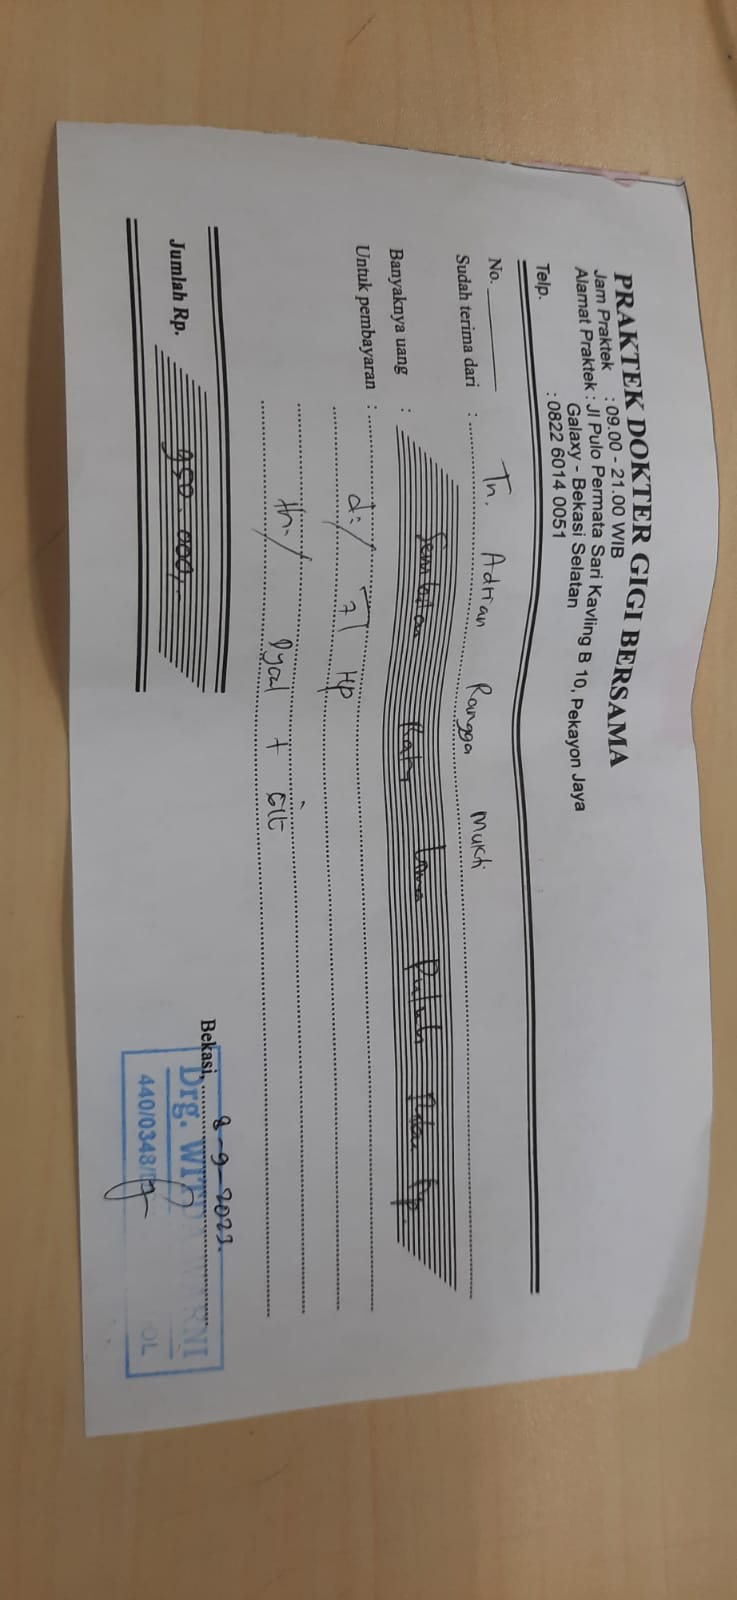 PRAKTEK DOKTER GIGI BERSAMA
Jam Praktek : 09.00 - 21.00 WIB
Alamat Praktek : Jl Pulo Permata Sari Kavling B 10, Pekayon Jaya
Galaxy - Bekasi Selatan
Telp. : 0822 6014 0051
No.
Sudah terima dari : Tn. Adrian Rangga Mukti
Banyaknya uang : Sembilan Ratus Lima Puluh Ribu Rp.
Untuk pembayaran :
d:/ 7| HP
th:/ Dycal +
Bekasi, 8-9-2023.
Jumlah Rp. 950.000,-
Drg. WARNI
440/0348/